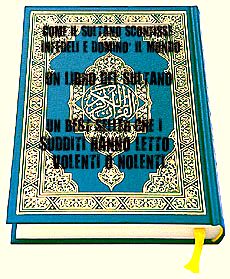 COME IL SULTANO SCONFISSE
INFEDELI E DOMINO' IL MONDO
UN LIBRO DEL SULTANO
UN BEST SELLER CHE I
SUDDITI HANNO LETTO
VOLENTI O NOLENTI